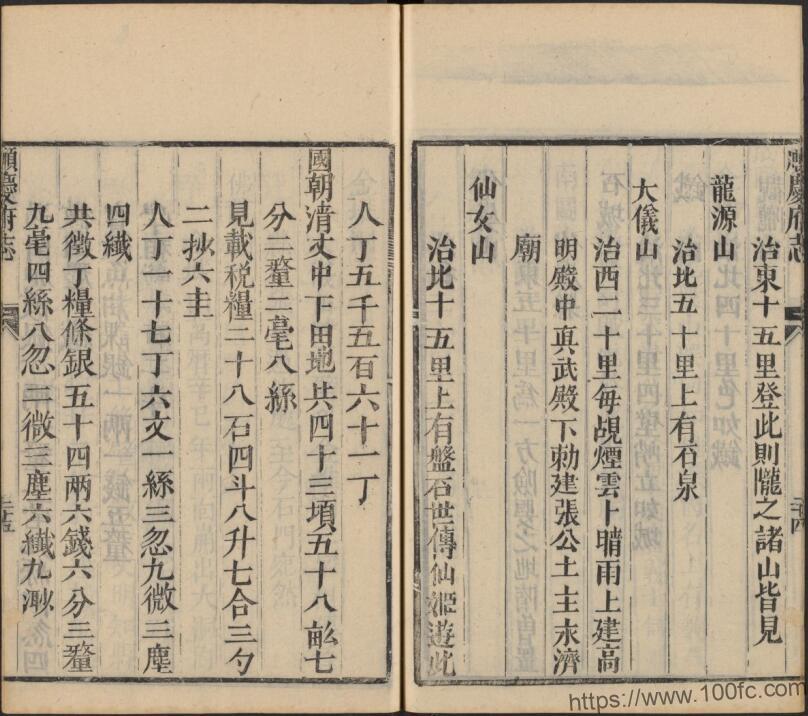 治東十五里登此則隴之諸山皆見
龍源山
治北五十里上有石泉
大儀山
治西二十里每覘煙雲卜晴雨上建高
明殿中真武殿下勅建張公土主永濟
廟
仙女山
治北十五里上有盤石世傳仙姬遊此
人丁五千五百六十一丁
國朝清丈中下田地共四十三頃五十八畝七
分二釐二毫八絲
見載稅糧二十八石四斗八升七合三勺
二抄六圭
人丁一十七丁六文一絲三忽九微三塵
四纖
共徵丁糧條銀五十四兩六錢六分三釐
九毫四絲八忽二微三塵六纖九渺
順慶府志
https://www.100fc.com